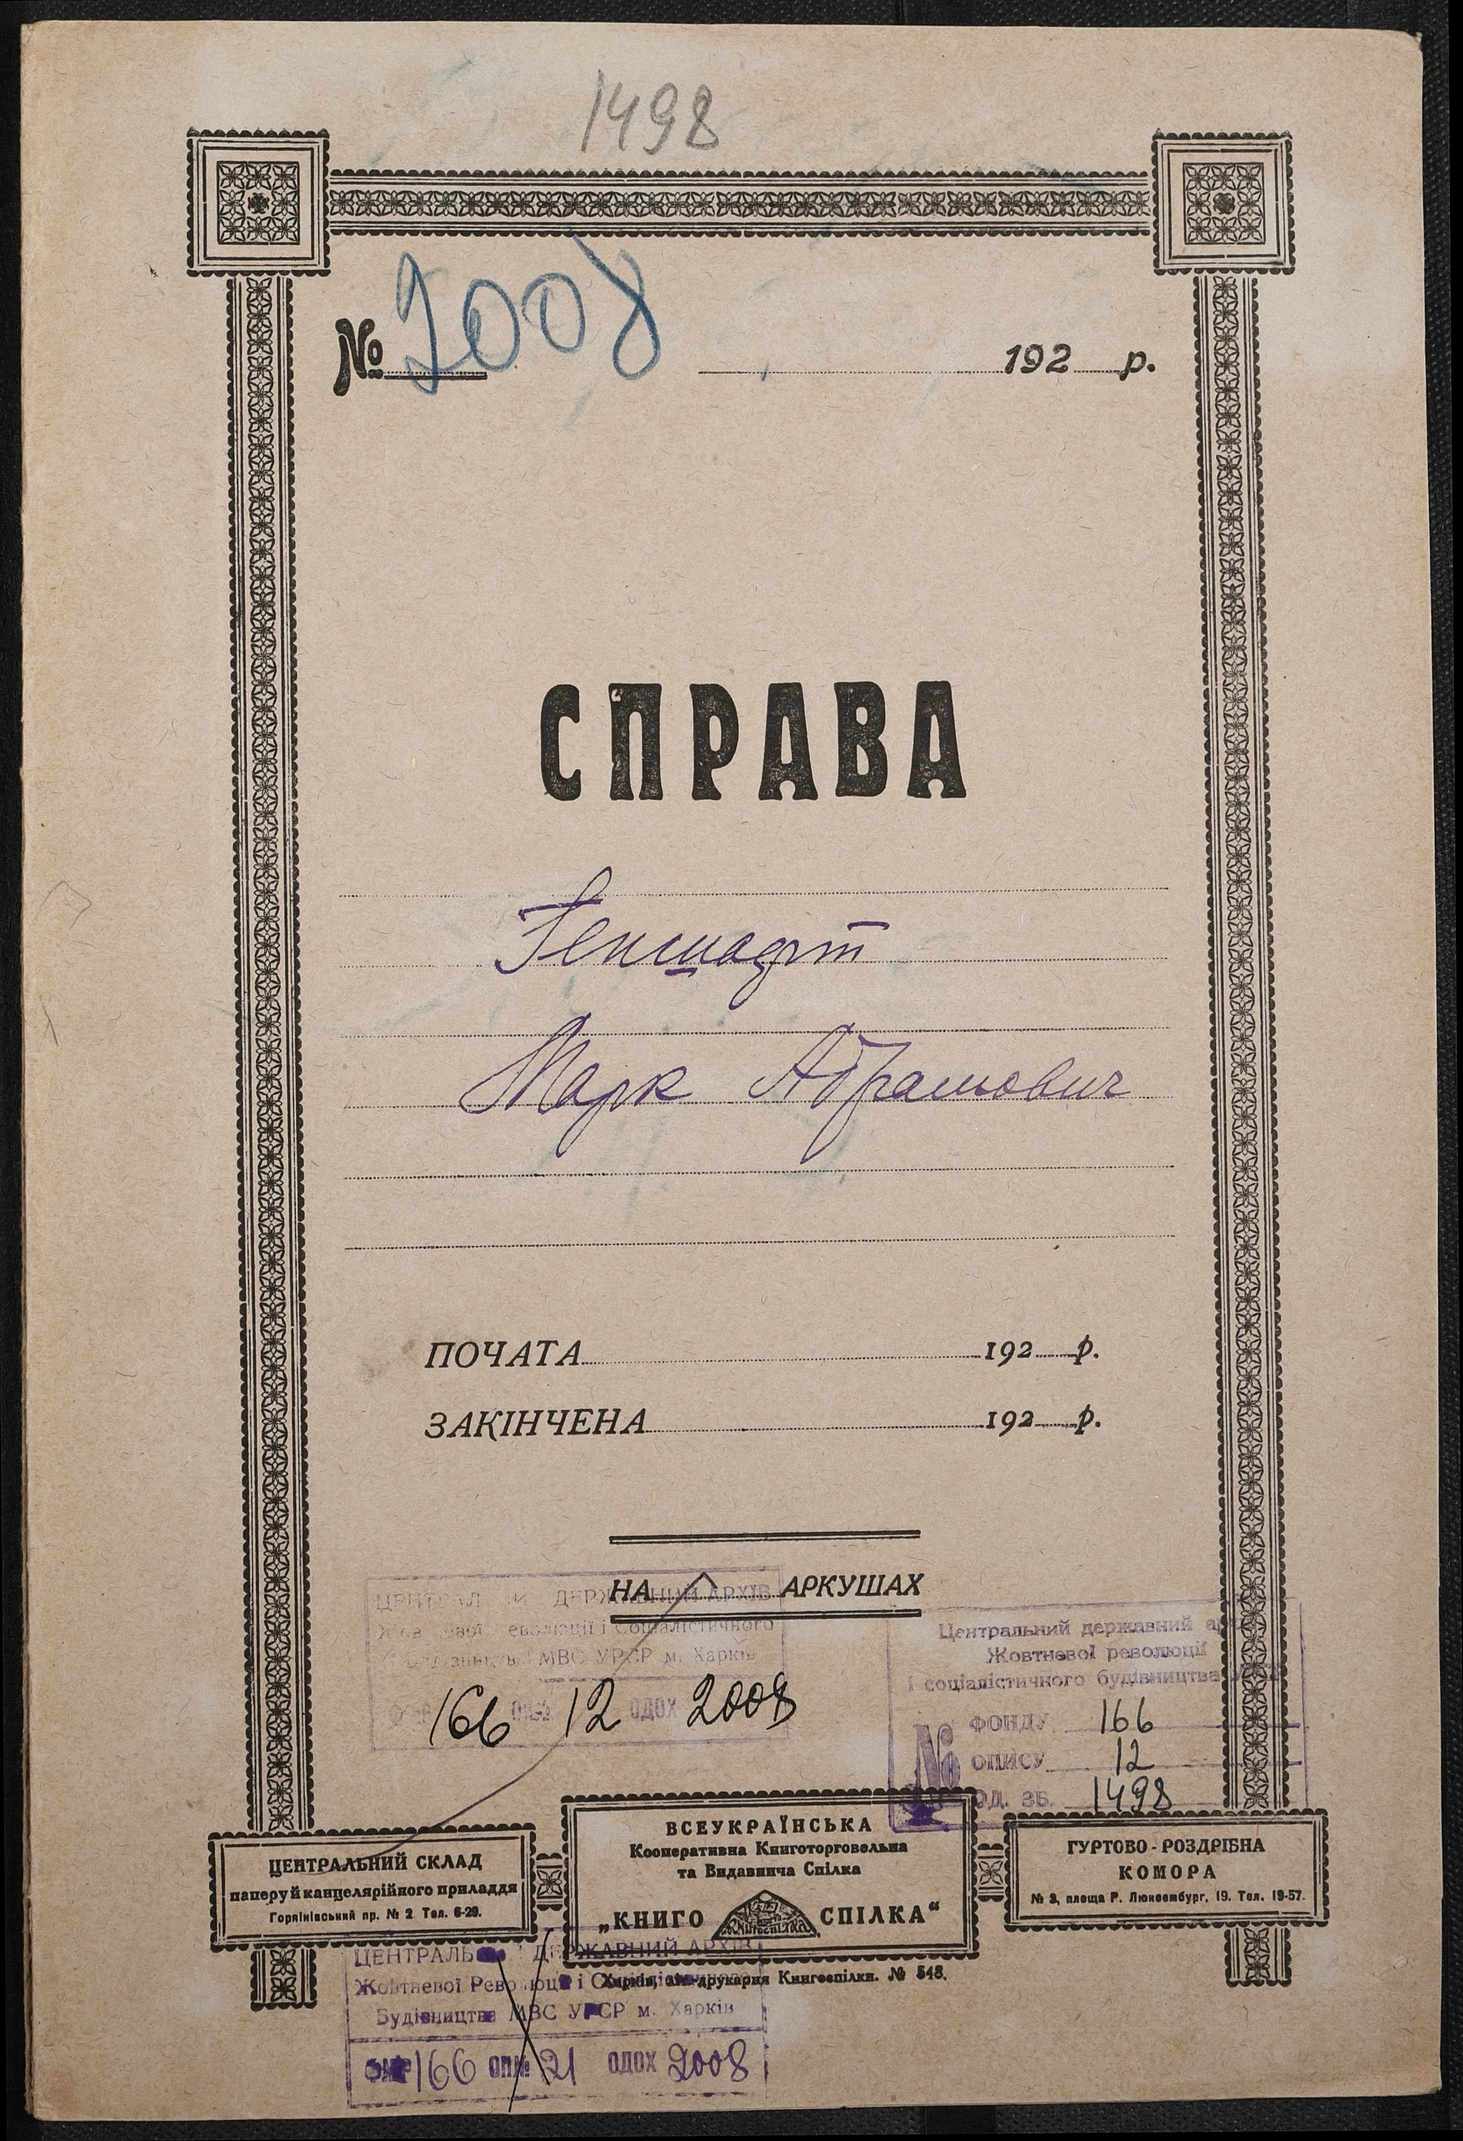 1498
№ 2008 192 р.
СПРАВА
Геншадт
Марк Абрамович
ПОЧАТА 192 р.
ЗАКІНЧЕНА 192 р.
НА АРКУШАХ
ДЕРЖАВНИЙ АРХІВ
і Соціалістичного
МВС УРСР м. Харків
166 12 ОДОХ 2008
Центральний державний
Жовтневої революції
і соціалістичного будівництва
№
ФОНДУ 166
ОПИСУ 12
ОД. ЗБ. 1498
ЦЕНТРАЛЬНИЙ СКЛАД
паперу й канцелярійного приладдя
Горяінівський пр. № 2. Тел. 6-29.
ВСЕУКРАЇНСЬКА
Кооперативна Книготорговельна
та Видавнича Спілка
„КНИГО СПІЛКА“
ГУРТОВО-РОЗДРІБНА
КОМОРА
№ 3, площа Р. Люксембург, 19. Тел. 19-57.
Харків, друкарня Книгоспілки. № 548.
ДЕРЖАВНИЙ АРХІВ
Жовтневої Революції і
Будівництва МВС УРСР м. Харків
166 21 ОДОХ 2008